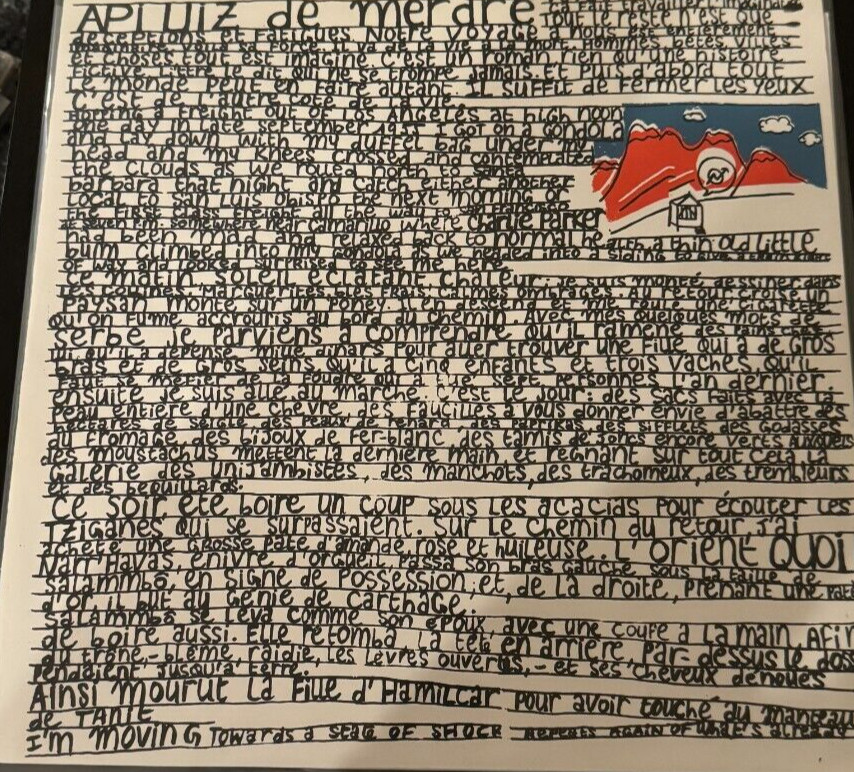 APLUIZ de merdre
ça fait travailler l'imagination
Tout le reste n'est que
déceptions et fatigues. Notre voyage à nous est entièrement
imaginaire. Voilà sa force. Il va de la vie à la mort. Hommes, bêtes, villes
et choses, tout est imaginé. C'est un roman, rien qu'une histoire
fictive. Littré le dit, qui ne se trompe jamais. Et puis d'abord tout
le monde peut en faire autant. Il suffit de fermer les yeux
C'est de l'autre côté de la vie.
Hopping a freight out of Los Angeles at high noon
one day in late september 1955 I got on a gondola
and lay down with my duffel bag under my
head and my knees crossed and contemplated
the clouds as we rolled north to Santa
Barbara that night and catch either another
local to San Luis Obispo the next morning or
the first class freight all the way to
at seven p.m. somewhere near Camarillo where Charlie Parker
had been mad and relaxed back to normal health a thin old little
bum climbed into my gondola as we headed into a siding to give a train right
of way and looked surprised to see me here
Ce matin, soleil éclatant, chaleur; je suis monté dessiner dans
les collines. Marguerites, blés frais, calmes ombrages. Au retour, croisé un
paysan monté sur un poney. Il en descend et me roule une cigarette
qu'on fume accroupis au bord du chemin. Avec mes quelques mots de
serbe je parviens à comprendre qu'il ramène des pains chez
lui, qu'il a dépensé mille dinars pour aller trouver une fille qui a de gros
bras et de gros seins, qu'il a cinq enfants et trois vaches, qu'il
faut se méfier de la foudre qui a tué sept personnes l'an dernier.
ensuite je suis allé au marché. C'est le jour: des sacs faits avec la
peau entière d'une chèvre, des faucilles à vous donner envie d'abattre des
hectares de seigle, des peaux de renard, des paprikas, des sifflets, des godasses
du fromage, des bijoux de fer-blanc, des tamis de joncs encore verts auxquels
des moustachus mettent la dernière main, et régnant sur tout cela, la
galerie des unijambistes, des manchots, des trachomeux, des trembleurs
et des béquillards.
Ce soir, été boire un coup sous les acacias pour écouter les
Tziganes qui se surpassaient. Sur le chemin du retour, j'ai
acheté une grosse pâte d'amande, rose et huileuse. L'orient quoi
Narr'Havas, enivré d'orgueil, passa son bras gauche sous la taille de
Salammbô, en signe de possession; et, de la droite, prenant une patère
d'or, il but au génie de Carthage.
Salammbô se leva comme son époux, avec une coupe à la main, afin
de boire aussi. Elle retomba, la tête en arrière, par-dessus le dos
du trône, -blême, raidie, les lèvres ouvertes, - et ses cheveux dénoués
pendaient jusqu'à terre.
Ainsi mourut la fille d'Hamilcar pour avoir touché au manteau
de TANIT
I'm moving towards a state of shock repeats again of what's already